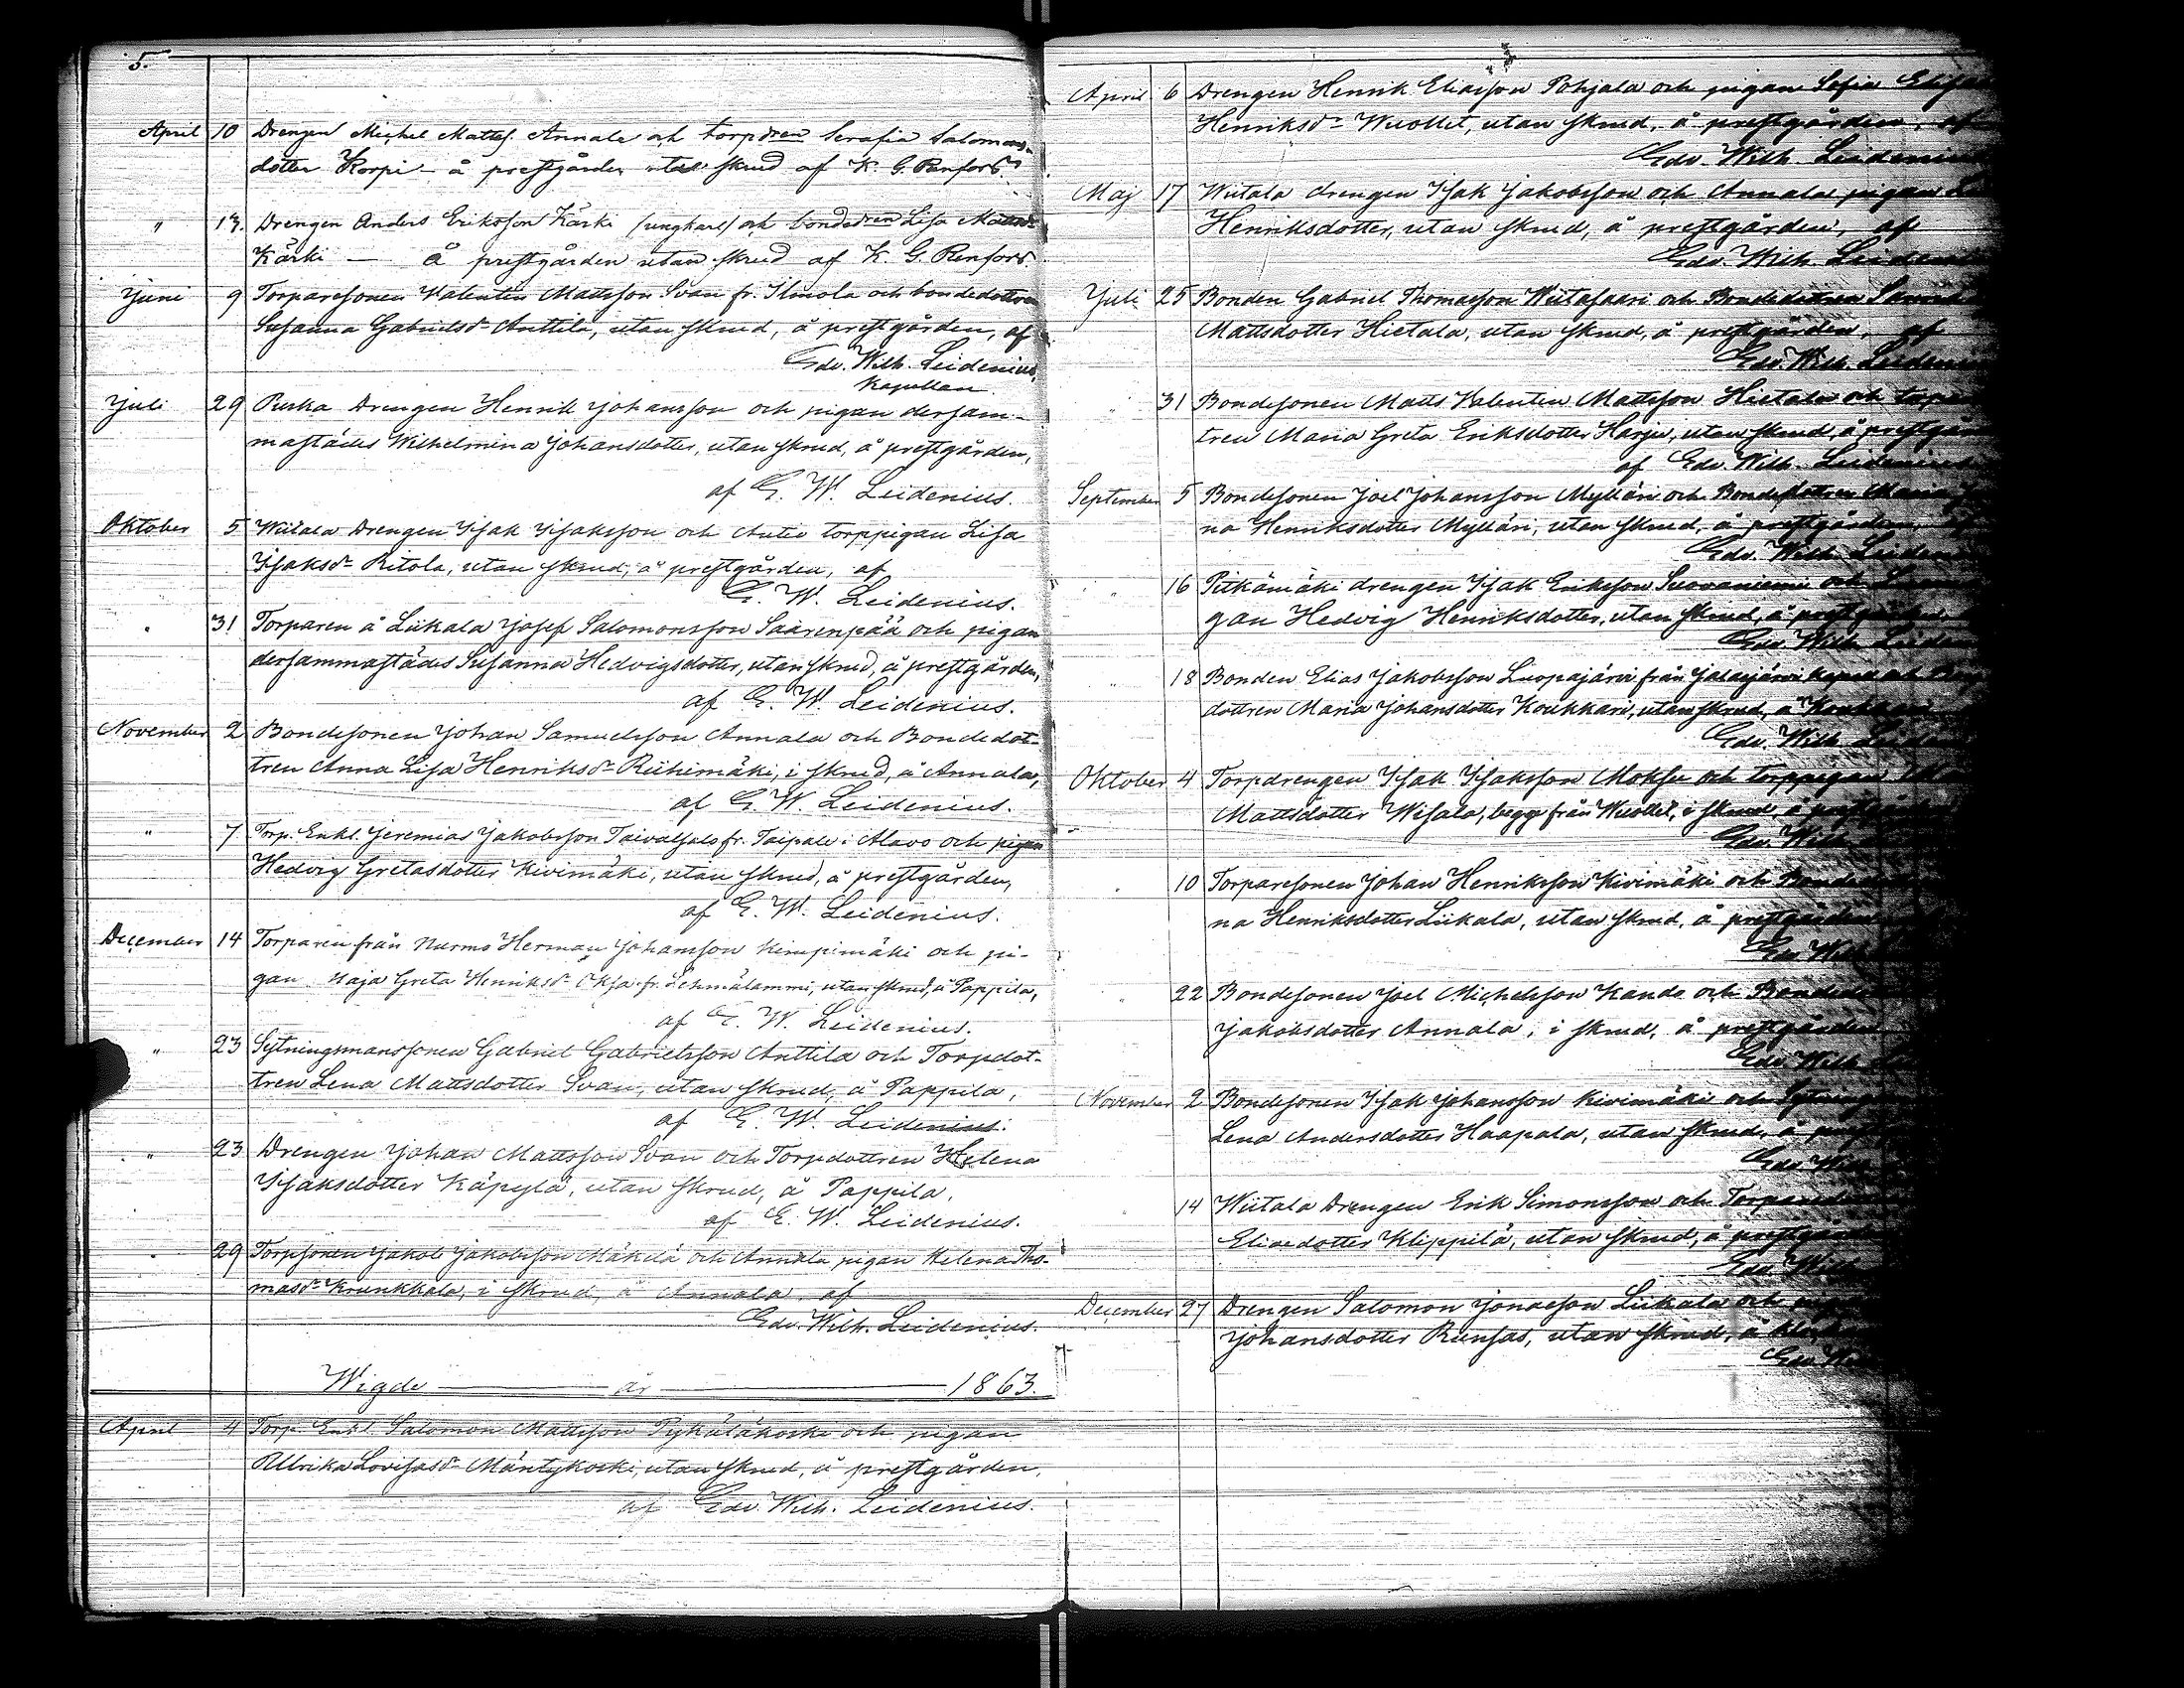 5.
April 10 Drengen Michel Mattsß. Annala och torpdren Serafia Salomons-
dotter Korpi – å prestgården utan skrud af K. G. Renfors.
" 13. Drengen Anders Eriksson Kärki (ungkarl) och bondedren Lisa Mattsdr
Kärki — å prestgården utan skrud af K. G. Renfors.
Juni 9 Torparesonen Valentin Mattsson Svan fr. Ilmola och bondedottren
Susanna Gabrielsdr Anttila, utan skrud, å prestgården, af
Edv. Wilh. Leidenius,
Kapellan
Juli 29 Ruska Drengen Henrik Johansson och pigan dersam-
mastädes Wilhelmina Johansdotter, utan skrud, å prestgården,
af E. W. Leidenius.
Oktober 5 Wiitala Drengen Isak Isaksson och Antio torppigan Lisa
Isaksdr Ritola, utan skrud, å prestgården, af
E. W. Leidenius.
" 31 Torparen å Liikala Josef Salomonsson Saarenpää och pigan
dersammastädes Susanna Hedvigsdotter, utan skrud, å prestgården,
af E. W. Leidenius.
November 2 Bondesonen Johan Samuelsson Annala och Bondedot-
tren Anna Lisa Henriksdr Riihimäki, i skrud, å Annala,
af E. W. Leidenius.
" 7 Torp. Enkl. Jeremias Jakobsson Taivalsalo fr. Taipale i Alavo och pigan
Hedvig Gretasdotter Kivimäki, utan skrud, å prestgården,
af E. W. Leidenius.
December 14 Torparen från Nurmo Herman Johansson Kimpimäki och pi-
gan Maja Greta Henriksdr Oksa fr. Lehmälammi, utan skrud, å Pappila,
af E. W. Leidenius.
" 23 Sytningsmanssonen Gabriel Gabrielsson Anttila och Torpdot-
tren Lena Mattsdotter Svan, utan skrud, å Pappila,
af E. W. Leidenius.
" 23 Drengen Johan Mattsson Svan och Torpdottren Helena
Isaksdotter Käpylä, utan skrud, å Pappila,
af E. W. Leidenius.
" 29 Torpsonen Jakob Jakobsson Mäkelä och Annala pigan Helena Tho-
masdr Krunkkala, i skrud, å Annala, af
Edv. Wilh. Leidenius.
Wigde — år — 1863.
April 4 Torp. Enkl. Salomon Mattsson Pykäläkoski och pigan
Ulbrika Lovisasdr Mäntykoski, utan skrud, å prestgården,
af Edv. Wilh. Leidenius.
April 6 Drengen Henrik Eliasson Pohjala och pigan Sofia
Henriksdr Wuollet, utan skrud, å prestgården, af
Edv. Wilh. Leidenius
Maj 17 Wiitala drengen Isak Jakobsson och Annala pigan
Henriksdotter, utan skrud, å prestgården, af
Edv. Wilh. Leidenius
Juli 25 Bonden Gabriel Thomasson Wiitasaari och Bondedottren
Mattsdotter Hietala, utan skrud, å prestgården, af
Edv. Wilh. Leidenius
" 31 Bondesonen Matts Valentin Mattsson Hietala och
tren Maria Greta Eriksdotter Harju, utan skrud, å prestgården
af Edv. Wilh. Leidenius
September 5 Bondesonen Joel Johansson Mylläri och Bondedottren Maria
na Henriksdotter Mylläri, utan skrud, å prestgården,
Edv. Wilh. Leidenius
" 16 Pitkämäki drengen Isak Eriksson Suovaniemi och
gan Hedvig Henriksdotter, utan skrud, å prestgården
Edv. Wilh. Leidenius
" 18 Bonden Elias Jakobsson Luopajärvi från Jalasjärvi kapell och
dottren Maria Johansdotter Koukkari, utan skrud, å
Edv. Wilh.
Oktober 4 Torpdrengen Isak Isaksson Moksu och torppigan
Mattsdotter Wisala, begge från Wuollet, i skrud, å
Edv. Wilh.
" 10 Torparesonen Johan Henriksson Kivimäki och
na Henriksdotter Liikala, utan skrud, å prestgården
Edv. Wilh.
" 22 Bondesonen Joel Michelsson Kando och
Jakobsdotter Annala, i skrud, å prestgården
Edv. Wilh.
November 2 Bondesonen Isak Johansson Kivimäki och
Lena Andersdotter Haapala, utan skrud, å
Edv. Wilh.
" 14 Wiitala Drengen Erik Simonsson och
Eliaedotter Klippilä, utan skrud, å
Edv. Wilh.
December 27 Drengen Salomon Jonaesson Liikala och
Johansdotter Runsas, utan skrud, å
Edv.